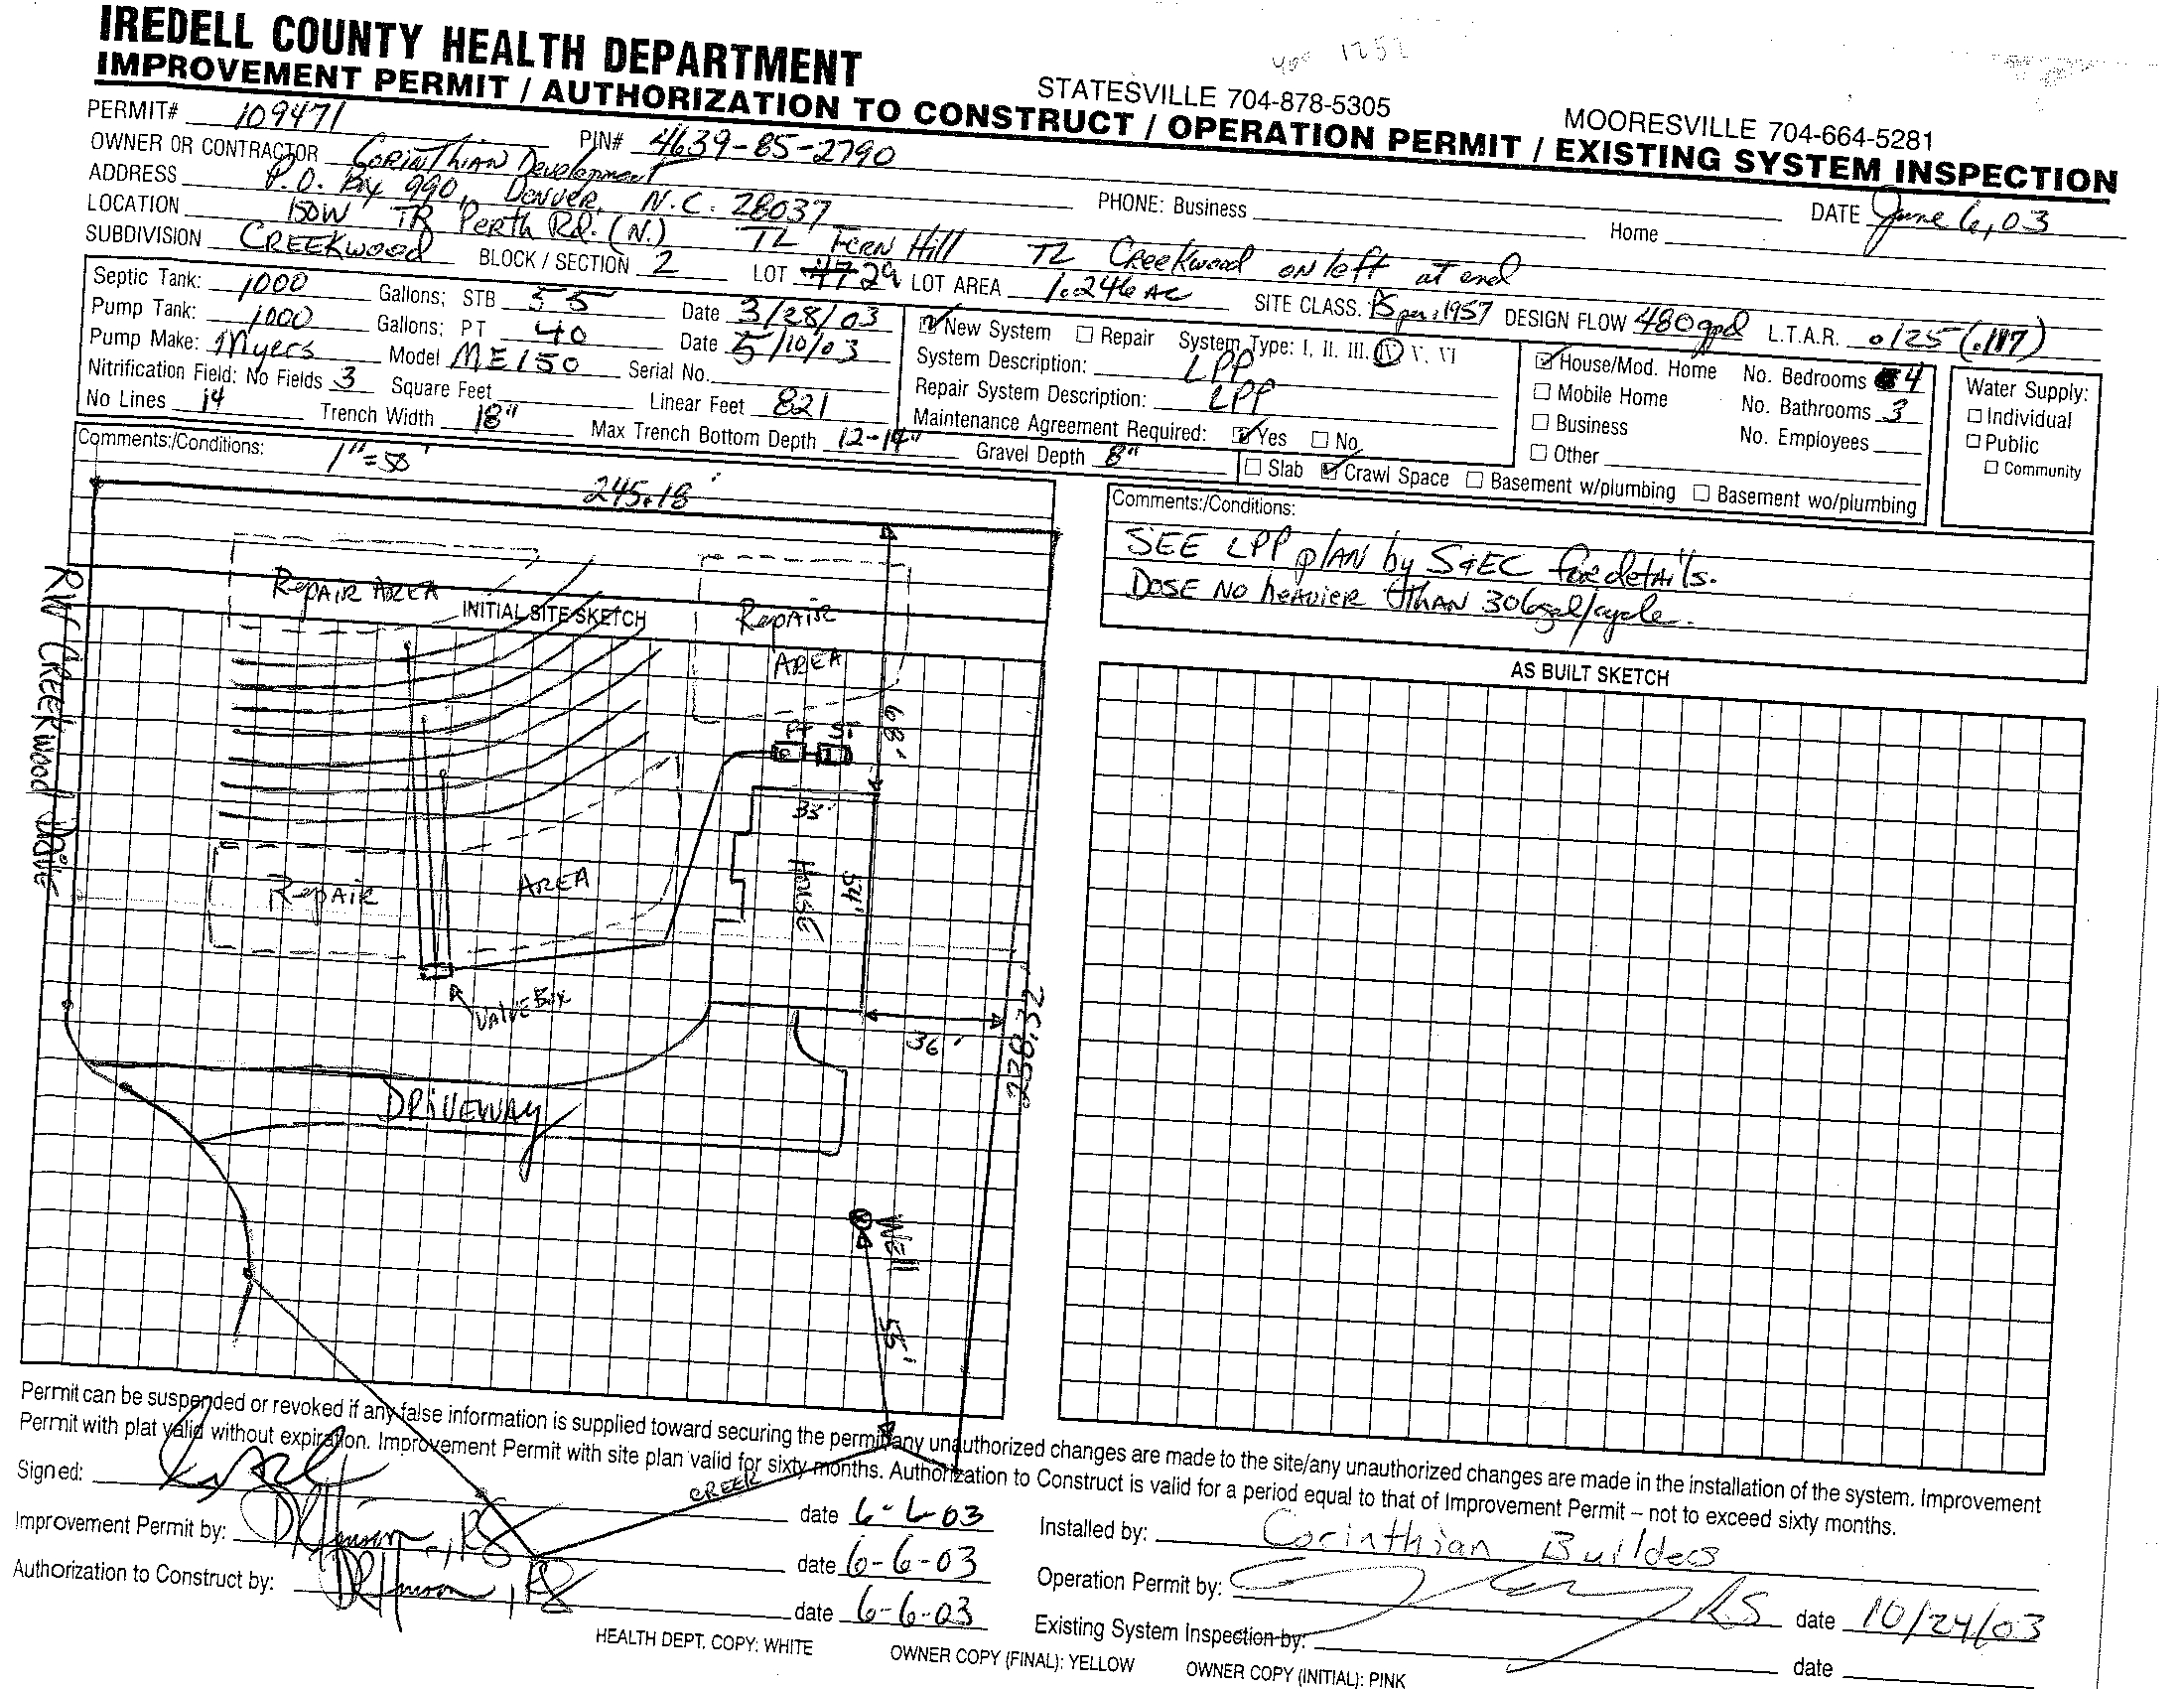 IREDELL COUNTY HEALTH DEPARTMENT
STATESVILLE 704-878-5305 MOORESVILLE 704-664-5281
IMPROVEMENT PERMIT / AUTHORIZATION TO CONSTRUCT / OPERATION PERMIT / EXISTING SYSTEM INSPECTION
PERMIT# 109471 PIN# 4639-85-2790 DATE June 6, 03
OWNER OR CONTRACTOR Corinthian Development PHONE: Business Home
ADDRESS P.O. Box 990, Denver, N.C. 28037
LOCATION 150W TR Perth Rd. (N.) TL Fern Hill TL Creekwood on left at end
SUBDIVISION CREEKWOOD BLOCK / SECTION 2 LOT 29 LOT AREA 1.246 AC SITE CLASS. PS per .1957 DESIGN FLOW 480gpd L.T.A.R. .125 (.117)
Septic Tank: 1000 Gallons; STB 55 Date 3/28/03
Pump Tank: 1000 Gallons; PT 40 Date 5/10/03
Pump Make: Myers Model ME150 Serial No.
Nitrification Field: No Fields 3 Square Feet Linear Feet 821
No Lines 14 Trench Width 18" Max Trench Bottom Depth 12-14" Gravel Depth 8"
New System Repair System Type: I. II. III. IV V. VI
System Description: LPP
Repair System Description: LPP
Maintenance Agreement Required: Yes No
House/Mod. Home No. Bedrooms 4
Mobile Home No. Bathrooms 3
Business No. Employees
Other
Water Supply:
Individual
Public
Community
Slab Crawl Space Basement w/plumbing Basement wo/plumbing
Comments:/Conditions: 1"=50'
245.18'
REPAIR AREA
INITIAL SITE SKETCH
Repair
AREA
68'
PT ST
33'
HOUSE
54'
RW CREEKWOOD DRIVE
Repair AREA
VALVE Box
36'
230.32'
DRIVEWAY
Well
55'
CREEK
Comments:/Conditions:
SEE LPP plan by S&EC for details.
DOSE NO heavier than 306gal/cycle.
AS BUILT SKETCH
Permit can be suspended or revoked if any false information is supplied toward securing the permit/any unauthorized changes are made to the site/any unauthorized changes are made in the installation of the system. Improvement
Permit with plat valid without expiration. Improvement Permit with site plan valid for sixty months. Authorization to Construct is valid for a period equal to that of Improvement Permit – not to exceed sixty months.
Signed: date 6-6-03
Improvement Permit by: date 6-6-03
Authorization to Construct by: date 6-6-03
Installed by: Corinthian Builders
Operation Permit by: RS date 10/24/03
Existing System Inspection by: date
HEALTH DEPT. COPY: WHITE OWNER COPY (FINAL): YELLOW OWNER COPY (INITIAL): PINK